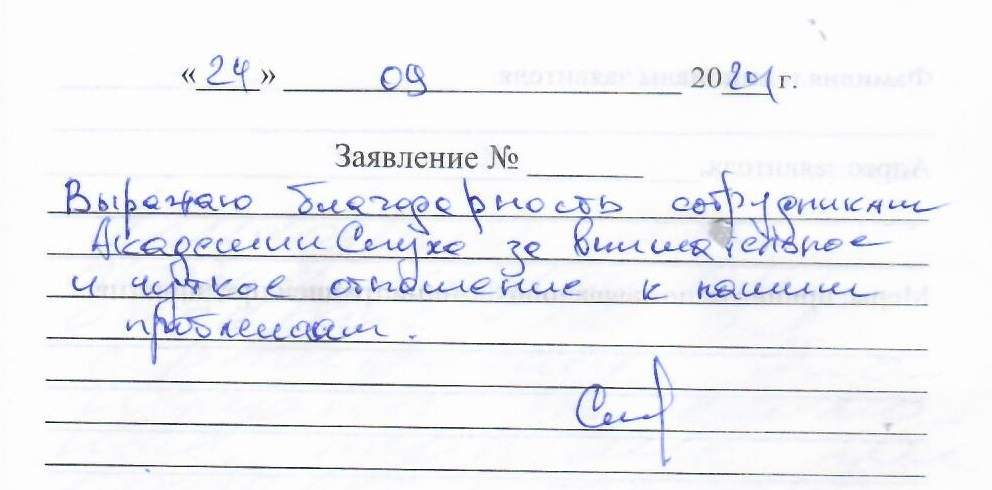 « 24 » 09 2021 г.
Заявление №
Выражаю благодарность сотрудникам
Академии Слуха за внимательное
и чуткое отношение к нашим
проблемам.